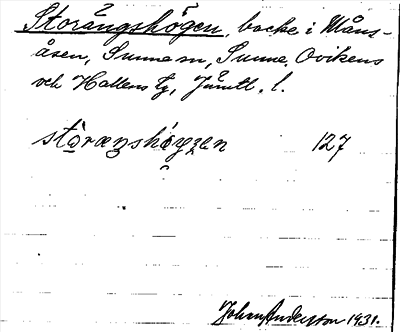 Storängshögen, backe i Måns-
åsen, Sunne sn, Sunne, Ovikens
och Hallens tg, Jämtl. l.
stòræŋshǿgen 127
John Anderson 1931.